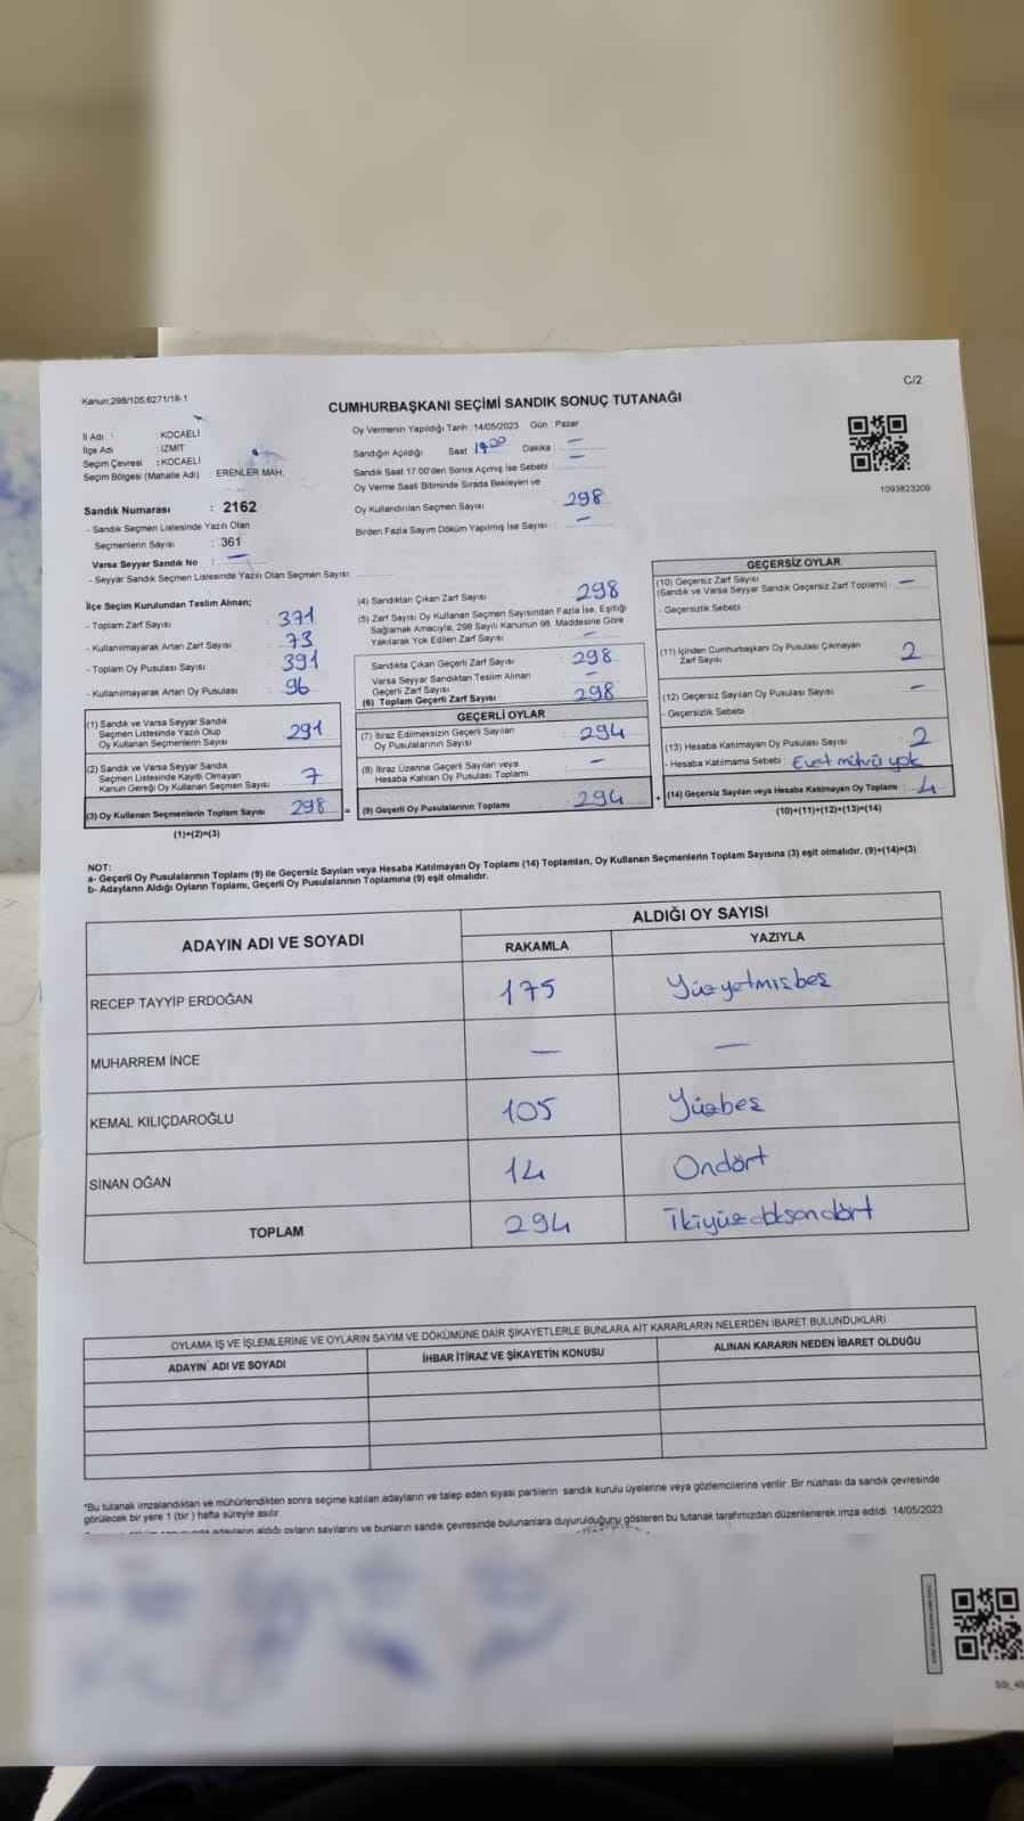 Kanun:298/105,6271/18-1
C/2
CUMHURBAŞKANI SEÇİMİ SANDIK SONUÇ TUTANAĞI
İl Adı : KOCAELİ
İlçe Adı : İZMİT
Seçim Çevresi : KOCAELİ
Seçim Bölgesi (Mahalle Adı) : ERENLER MAH.
Sandık Numarası : 2162
- Sandık Seçmen Listesinde Yazılı Olan
Seçmenlerin Sayısı : 361
Varsa Seyyar Sandık No : —
- Seyyar Sandık Seçmen Listesinde Yazılı Olan Seçmen Sayısı:
Oy Vermenin Yapıldığı Tarih : 14/05/2023 Gün : Pazar
Sandığın Açıldığı Saat Dakika : —
Sandık Saat 17:00'den Sonra Açılmış İse Sebebi : —
Oy Verme Saati Bitiminde Sırada Bekleyen ve
Oy Kullandırılan Seçmen Sayısı : 298
Birden Fazla Sayım Döküm Yapılmış İse Sayısı : —
1093823209
İlçe Seçim Kurulundan Teslim Alınan;
- Toplam Zarf Sayısı 371
- Kullanılmayarak Artan Zarf Sayısı 73
- Toplam Oy Pusulası Sayısı 391
- Kullanılmayarak Artan Oy Pusulası 96
(1) Sandık ve Varsa Seyyar Sandık
Seçmen Listesinde Yazılı Olup
Oy Kullanan Seçmenlerin Sayısı 291
(2) Sandık ve Varsa Seyyar Sandık
Seçmen Listesinde Kayıtlı Olmayan
Kanun Gereği Oy Kullanan Seçmen Sayısı 7
(3) Oy Kullanan Seçmenlerin Toplam Sayısı 298 =
(1)+(2)=(3)
(4) Sandıktan Çıkan Zarf Sayısı 298
(5) Zarf Sayısı Oy Kullanan Seçmen Sayısından Fazla İse, Eşitliği
Sağlamak Amacıyla, 298 Sayılı Kanunun 98. Maddesine Göre
Yakılarak Yok Edilen Zarf Sayısı —
Sandıkta Çıkan Geçerli Zarf Sayısı 298
Varsa Seyyar Sandıktan Teslim Alınan
Geçerli Zarf Sayısı —
(6) Toplam Geçerli Zarf Sayısı 298
GEÇERLİ OYLAR
(7) İtiraz Edilmeksizin Geçerli Sayılan
Oy Pusulalarının Sayısı 294
(8) İtiraz Üzerine Geçerli Sayılan veya
Hesaba Katılan Oy Pusulası Toplamı —
(9) Geçerli Oy Pusulalarının Toplamı 294 +
GEÇERSİZ OYLAR
(10) Geçersiz Zarf Sayısı
(Sandık ve Varsa Seyyar Sandık Geçersiz Zarf Toplamı) —
- Geçersizlik Sebebi
(11) İçinden Cumhurbaşkanı Oy Pusulası Çıkmayan
Zarf Sayısı 2
(12) Geçersiz Sayılan Oy Pusulası Sayısı —
- Geçersizlik Sebebi
(13) Hesaba Katılmayan Oy Pusulası Sayısı 2
- Hesaba Katılmama Sebebi : Evet mührü yok
(14) Geçersiz Sayılan veya Hesaba Katılmayan Oy Toplamı 4
(10)+(11)+(12)+(13)=(14)
NOT:
a- Geçerli Oy Pusulalarının Toplamı (9) ile Geçersiz Sayılan veya Hesaba Katılmayan Oy Toplamı (14) Toplamları, Oy Kullanan Seçmenlerin Toplam Sayısına (3) eşit olmalıdır. (9)+(14)=(3)
b- Adayların Aldığı Oyların Toplamı, Geçerli Oy Pusulalarının Toplamına (9) eşit olmalıdır.
ADAYIN ADI VE SOYADI ALDIĞI OY SAYISI
RAKAMLA YAZIYLA
RECEP TAYYİP ERDOĞAN 175 Yüzyetmişbeş
MUHARREM İNCE — —
KEMAL KILIÇDAROĞLU 105 Yüzbeş
SİNAN OĞAN 14 Ondört
TOPLAM 294 İkiyüzdoksandört
OYLAMA İŞ VE İŞLEMLERİNE VE OYLARIN SAYIM VE DÖKÜMÜNE DAİR ŞİKAYETLERLE BUNLARA AİT KARARLARIN NELERDEN İBARET BULUNDUKLARI
ADAYIN ADI VE SOYADI İHBAR İTİRAZ VE ŞİKAYETİN KONUSU ALINAN KARARIN NEDEN İBARET OLDUĞU
*Bu tutanak imzalandıktan ve mühürlendikten sonra seçime katılan adayların ve talep eden siyasi partilerin sandık kurulu üyelerine veya gözlemcilerine verilir. Bir nüshası da sandık çevresinde
görülecek bir yere 1 (bir) hafta süreyle asılır.
adayların aldığı oyların sayılarını ve bunların sandık çevresinde bulunanlara duyurulduğunu gösteren bu tutanak tarafımızdan düzenlenerek imza edildi. 14/05/2023